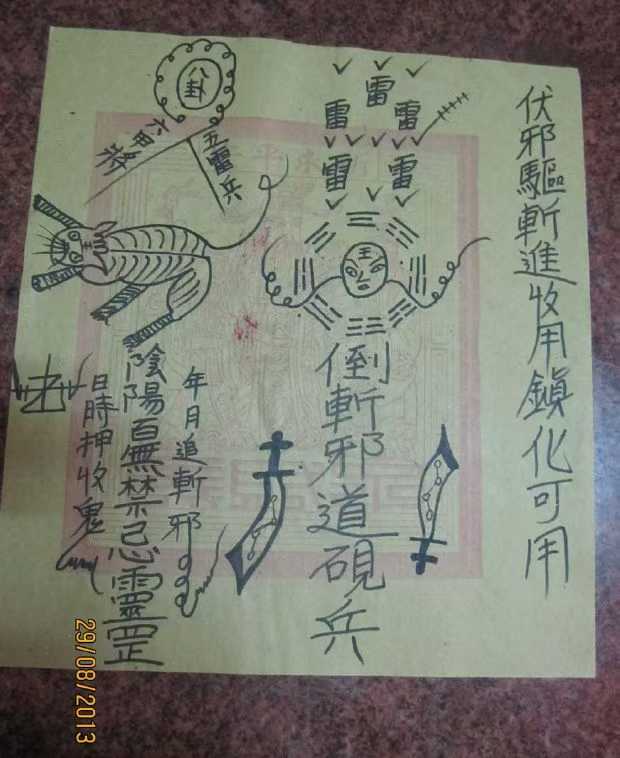 伏邪驅斬進收用鎖化可用
雷
雷 雷
雷 雷
王
倒斬邪道硯兵
八卦
五雷兵
六甲將
王
年月追斬邪
陰陽百無禁忌靈罡
日時押收鬼
29/08/2013